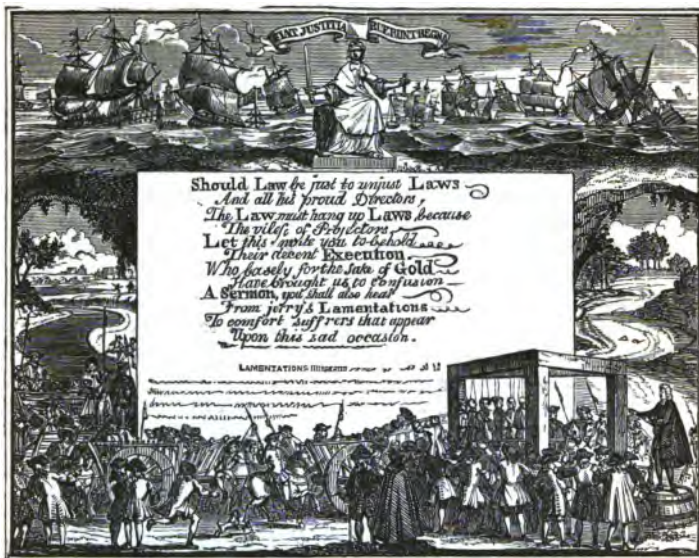 FIAT JUSTITIA RUERUNT REGNA
Should Law be just to unjust Laws
And all his proud Directors,
The Law must hang up Laws, because
The viless of Projectors
Let this invite you to behold
Their decent Execution
Who basely for the sake of Gold
Have brought us to confusion
A Sermon, you shall also hear
From jerry's Lamentations
To comfort suffrers that appear
Upon this sad occasion.
LAMENTATIONS